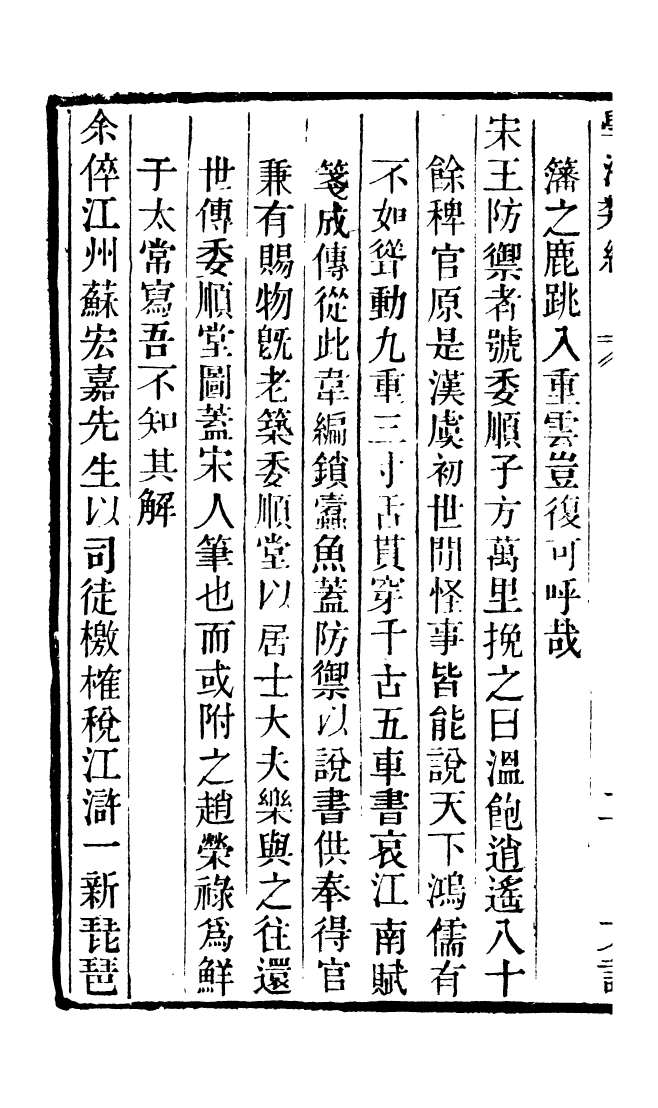 學海類編
藩之鹿跳入重雲豈復可呼哉
宋王防禦者號委順子方萬里挽之曰溫飽逍遙八十
餘稗官原是漢虞初世間怪事皆能說天下鴻儒有
不如聳動九重三寸舌貫穿千古五車書哀江南賦
箋成傳從此韋編鎖蠹魚蓋防禦以說書供奉得官
兼有賜物旣老築委順堂以居士大夫樂與之往還
世傳委順堂圖蓋宋人筆也而或附之趙榮祿爲鮮
于太常寫吾不知其解
余倅江州蘇宏嘉先生以司徒檄榷稅江滸一新琵琶